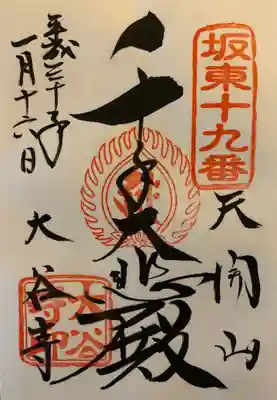 坂東十九番
天開山
千手大悲殿
平成三十年
一月十六日
大谷寺
大谷
寺印